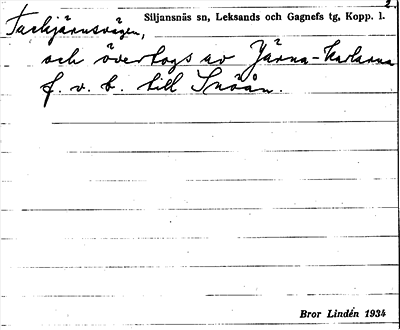 2.
Tackjärnsvägen, Siljansnäs sn, Leksands och Gagnefs tg, Kopp. l.
och övertogs av Järna-karlarna
f. v. b. till Snöån.
Bror Lindén 1934